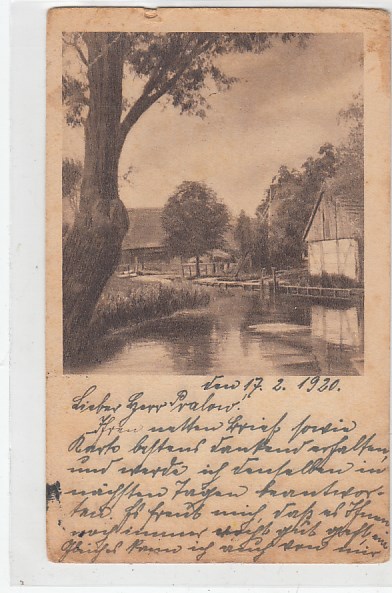 den 17. 2. 1920.
Lieber Herr Pralow!
Ihren netten Brief sowie
Karte bestens dankend erhalten,
und werde ich denselben in
nächsten Tagen beantwor-
ten. Es freut mich, daß es Ihnen
noch immer recht gut geht,
Gleiches kann ich auch von mir